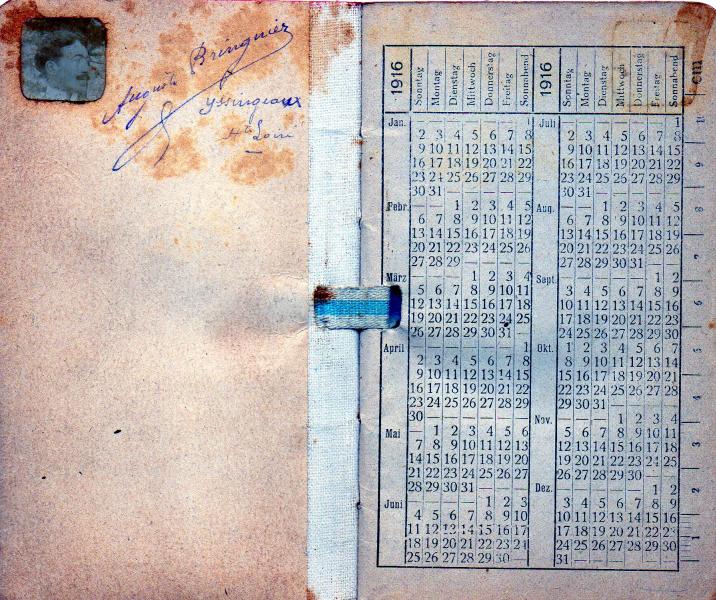 Auguste Bringuier
Yssingeaux
Hte Loire
1916 Sonntag Montag Dienstag Mittwoch Donnerstag Freitag Sonnabend
Jan. — — — — — — 1
2 3 4 5 6 7 8
9 10 11 12 13 14 15
16 17 18 19 20 21 22
23 24 25 26 27 28 29
30 31 — — — — —
Febr. — — 1 2 3 4 5
6 7 8 9 10 11 12
13 14 15 16 17 18 19
20 21 22 23 24 25 26
27 28 29 — — — —
März — — — 1 2 3 4
5 6 7 8 9 10 11
12 13 14 15 16 17 18
19 20 21 22 23 24 25
26 27 28 29 30 31 —
April — — — — — — 1
2 3 4 5 6 7 8
9 10 11 12 13 14 15
16 17 18 19 20 21 22
23 24 25 26 27 28 29
30 — — — — — —
Mai — 1 2 3 4 5 6
7 8 9 10 11 12 13
14 15 16 17 18 19 20
21 22 23 24 25 26 27
28 29 30 31 — — —
Juni — — — — 1 2 3
4 5 6 7 8 9 10
11 12 13 14 15 16 17
18 19 20 21 22 23 24
25 26 27 28 29 30 —
1916 Sonntag Montag Dienstag Mittwoch Donnerstag Freitag Sonnabend
Juli — — — — — — 1
2 3 4 5 6 7 8
9 10 11 12 13 14 15
16 17 18 19 20 21 22
23 24 25 26 27 28 29
30 31 — — — — —
Aug. — — 1 2 3 4 5
6 7 8 9 10 11 12
13 14 15 16 17 18 19
20 21 22 23 24 25 26
27 28 29 30 31 — —
Sept. — — — — — 1 2
3 4 5 6 7 8 9
10 11 12 13 14 15 16
17 18 19 20 21 22 23
24 25 26 27 28 29 30
Okt. 1 2 3 4 5 6 7
8 9 10 11 12 13 14
15 16 17 18 19 20 21
22 23 24 25 26 27 28
29 30 31 — — — —
Nov. — — — 1 2 3 4
5 6 7 8 9 10 11
12 13 14 15 16 17 18
19 20 21 22 23 24 25
26 27 28 29 30 — —
Dez. — — — — — 1 2
3 4 5 6 7 8 9
10 11 12 13 14 15 16
17 18 19 20 21 22 23
24 25 26 27 28 29 30
31 — — — — — —
cm